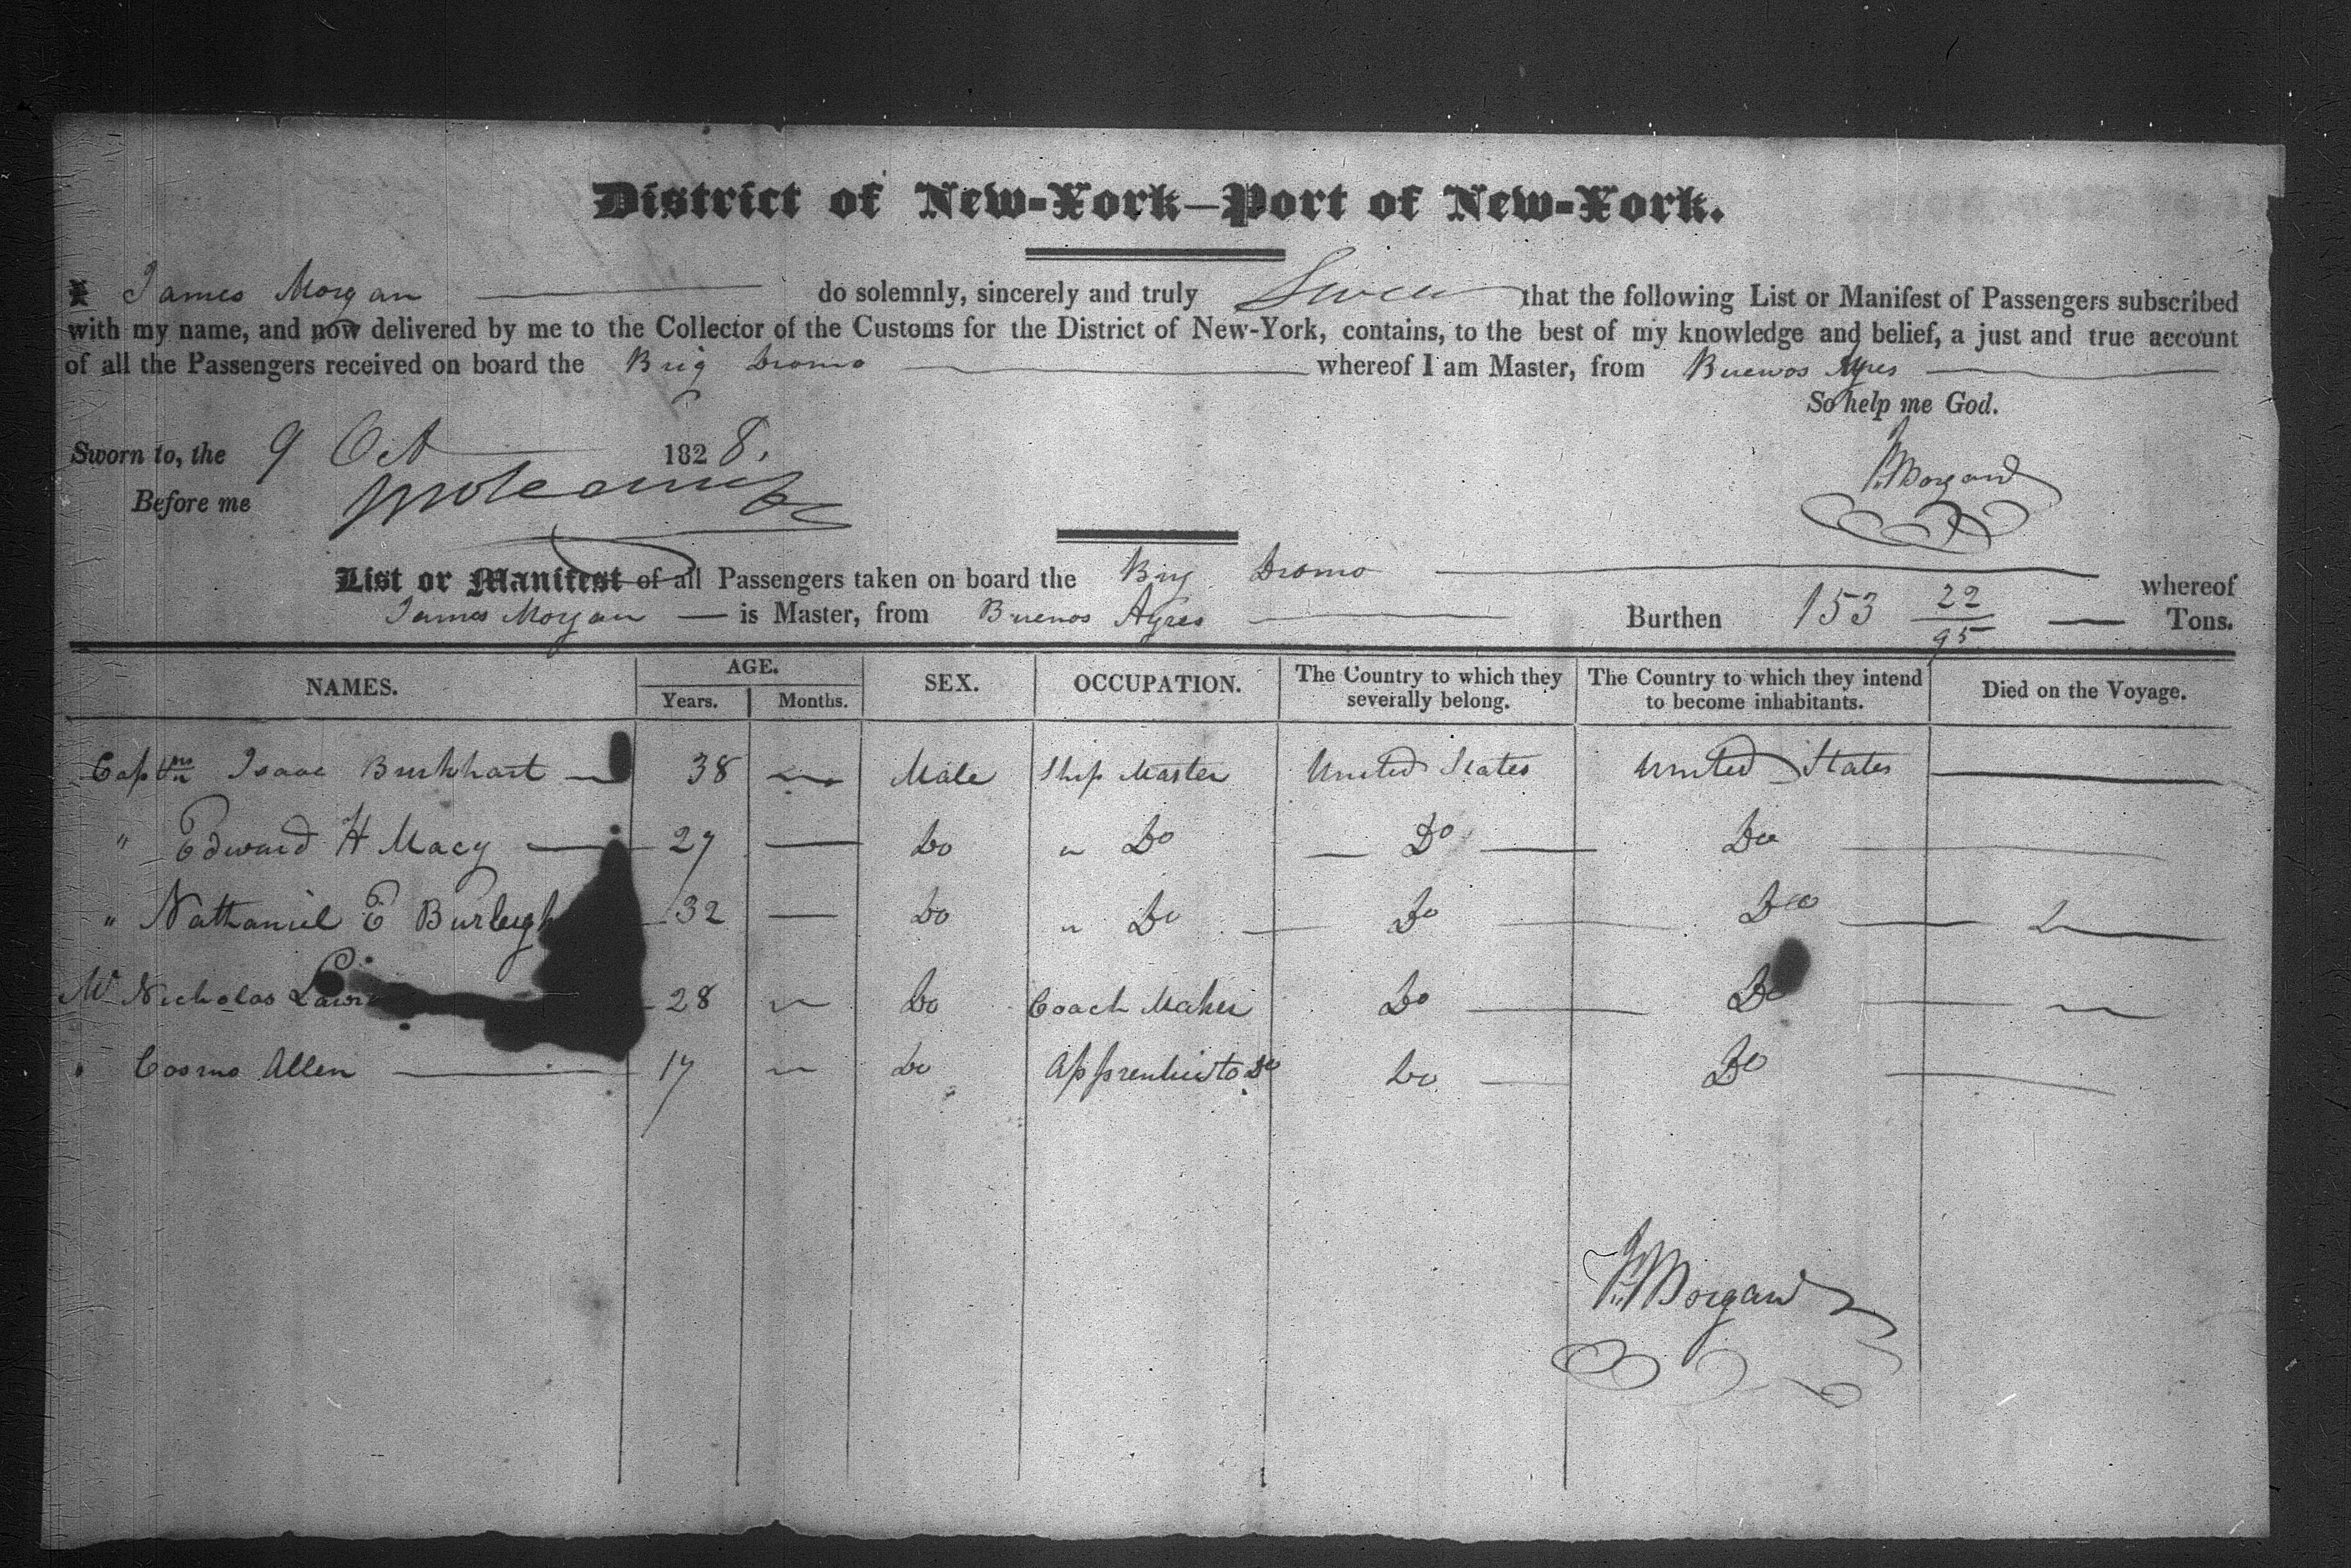 District of New-York—Port of New-York.
I James Morgan do solemnly, sincerely and truly Swear that the following List or Manifest of Passengers subscribed
with my name, and now delivered by me to the Collector of the Customs for the District of New-York, contains, to the best of my knowledge and belief, a just and true account
of all the Passengers received on board the Brig Dromo whereof I am Master, from Buenos Ayres
So help me God.
Sworn to, the 9 Oct 1828.
Before me
J. Morgan
List or Manifest of all Passengers taken on board the Brig Dromo whereof
James Morgan is Master, from Buenos Ayres Burthen 153 22/95 Tons.
NAMES. AGE. Years. Months. SEX. OCCUPATION. The Country to which they severally belong. The Country to which they intend to become inhabitants. Died on the Voyage.
Isaac Burkhart 38 Male Ship Master United States United States
" Edward H Macy 27 Do " Do Do Do
" Nathaniel E Burleigh 32 Do " Do Do Do
Mr Nicholas 28 Do Coach Maker Do Do
Cosmo Allen 17 Do Apprentice to Do Do Do
J. Morgan